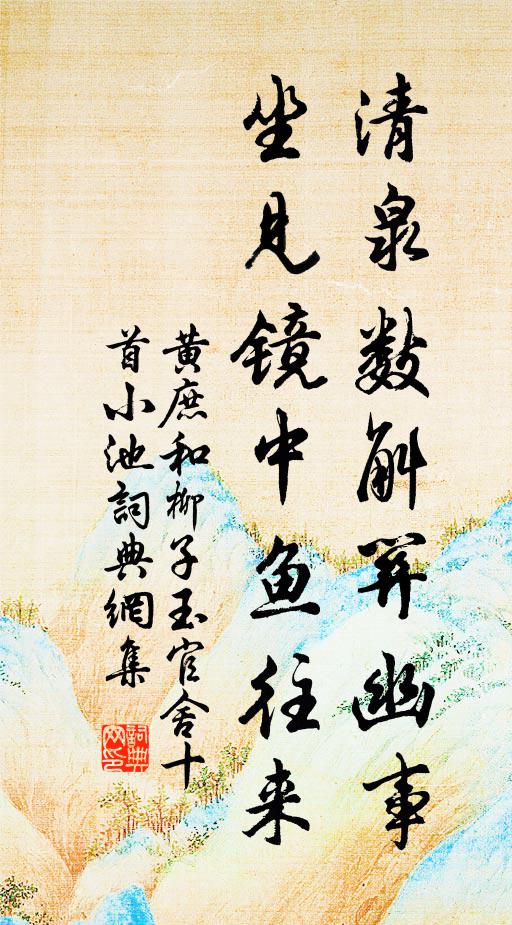 清泉数斛开幽事
坐见镜中鱼往来
黄庶和柳子玉官舍十
首小池詞典網集
詞典
网印